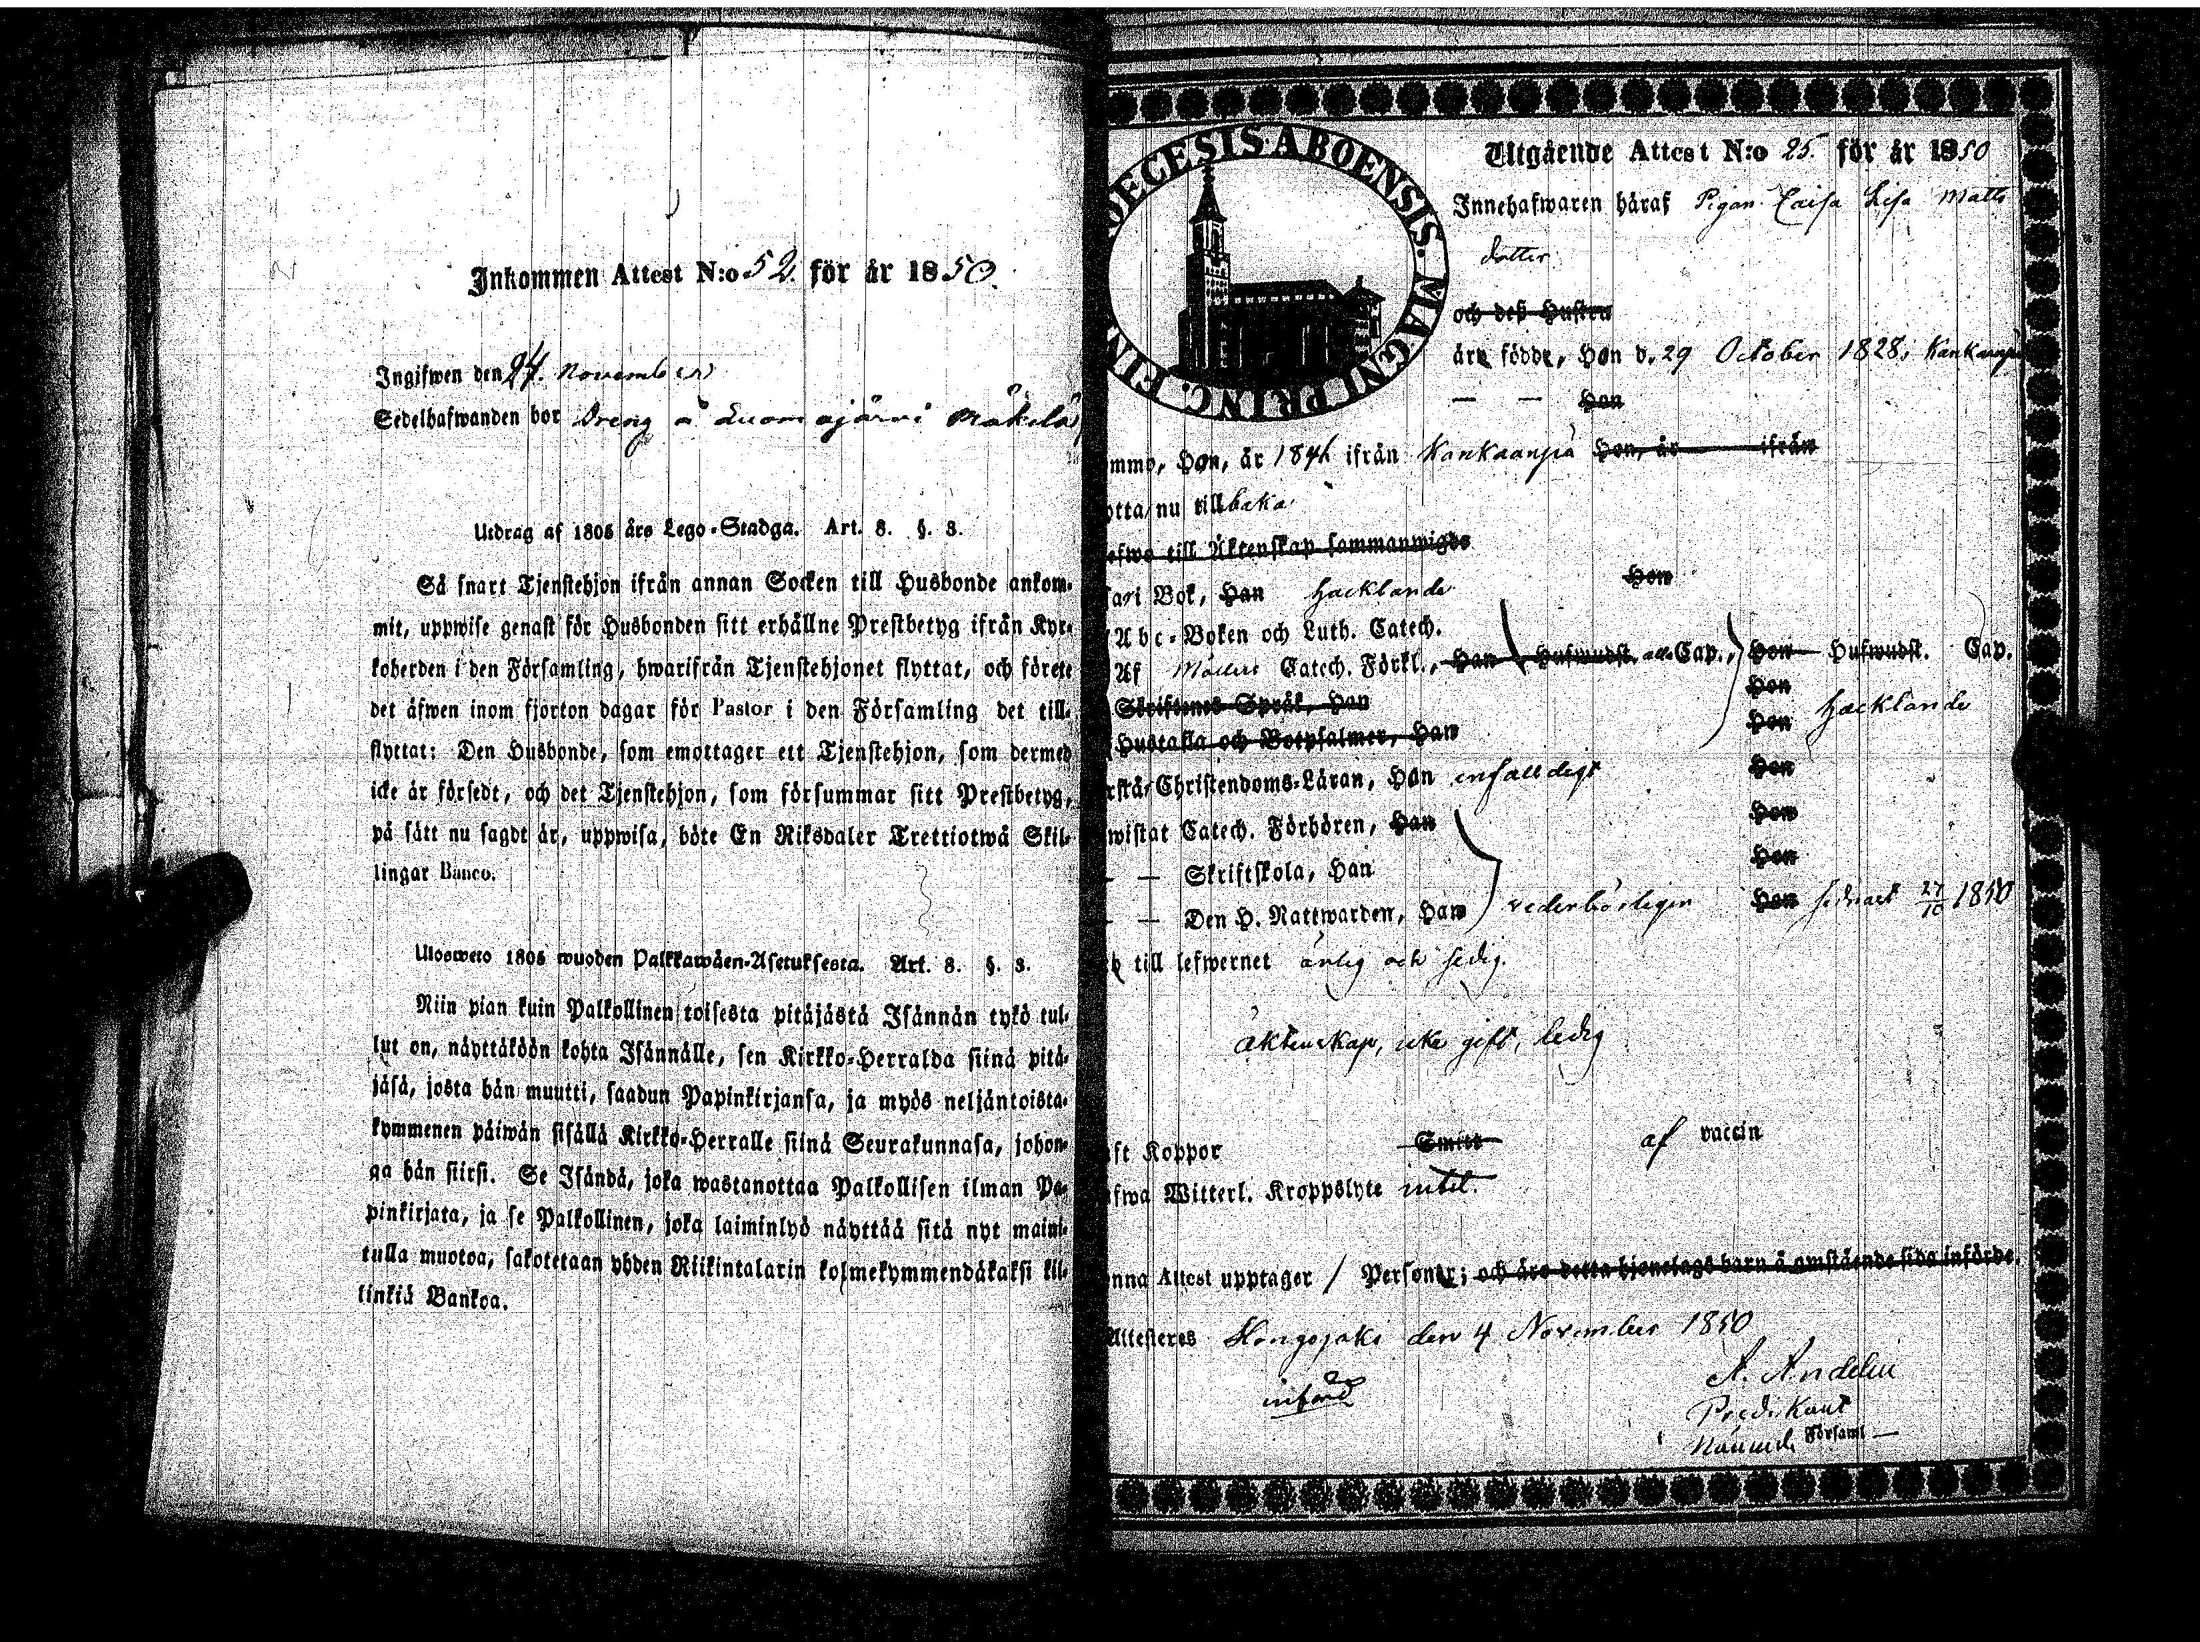 Inkommen Attest N:o 52. för år 1850.
Ingifwen den 24. November
Sedelhafwanden bor Dreng å Luomajärvi Mäkelä
Utdrag af 1805 års Lego-Stadga. Art. 8. §. 3.
Så snart Tjenstehjon ifrån annan Socken till Husbonde ankom-
mit, uppwise genast för Husbonden sitt erhållne Prestbetyg ifrån Kyr-
koherden i den Församling, hwarifrån Tjenstehjonet flyttat, och förete
det äfwen inom fjorton dagar för Pastor i den Församling det till-
flyttat: Den Husbonde, som emottager ett Tjenstehjon, som dermed
icke är försedt, och det Tjenstehjon, som försummar sitt Prestbetyg,
på sätt nu sagdt är, uppwisa, böte En Riksdaler Trettiotwå Skil-
lingar Banco.
Ulosweto 1805 wuoden Palkkawäen-Asetuksesta. Art. 8. §. 3.
Niin pian kuin Palkollinen toisesta pitäjästä Isännän tykö tul-
lut on, näyttäköön kohta Isännälle, sen Kirkko-Herralda siinä pitä-
jäsä, josta hän muutti, saadun Papinkirjansa, ja myös neljäntoista-
kymmenen päiwän sisällä Kirkko-Herralle siinä Seurakunnasa, johon-
ga hän siirsi. Se Isändä, joka wastanottaa Palkollisen ilman Pa-
pinkirjata, ja se Palkollinen, joka laiminlyö näyttää sitä nyt maini-
tulla muotoa, sakotetaan yhden Riikintalarin kolmekymmendäkaksi kil-
linkiä Bankoa.
DECESIS ABOENSIS. MAGNI PRINC. FIN
Utgående Attest N:o 25. för år 1850
Innehafwaren häraf Pigan Caisa Lisa Matts
dotter
och deß Hustru
äre födde, Hon d. 29 October 1828 i Kankaanpä
— — Hon
mmo, Hon, år 1846 ifrån Kankaanpä Hon, år ifrån
otta nu tillbaka
efwo till Äktenskap sammanwigde
ari Bok, Han hacklande Hon
Abc-Boken och Luth. Catech.
Af Möllers Catech. Förkl., Han Hufwudst. alla Cap., Hon Hufwudst. Cap.
Skriftenes Språk, Han Hon
Hustafla och Botpsalmer, Han Hon hacklande
rstå Christendoms-Läran, Han enfalldigt Hon
wistat Catech. Förhören, Han Hon
— — Skriftskola, Han Hon
— — Den H. Nattwarden, Han vederbörligen Hon sednast 27/10 1850
till lefwernet ärlig och sedig.
äktenskap, icke gift, ledig
ft Koppor Smitt af vaccin
fwa Witterl. Kroppslyte intet.
nna Attest upptager 1 Personer; och äro detta hjonelags barn å omstående sida införde.
Attesteres Hongojoki den 4 November 1850
införd A. Andelin
Predikant
i Församl —